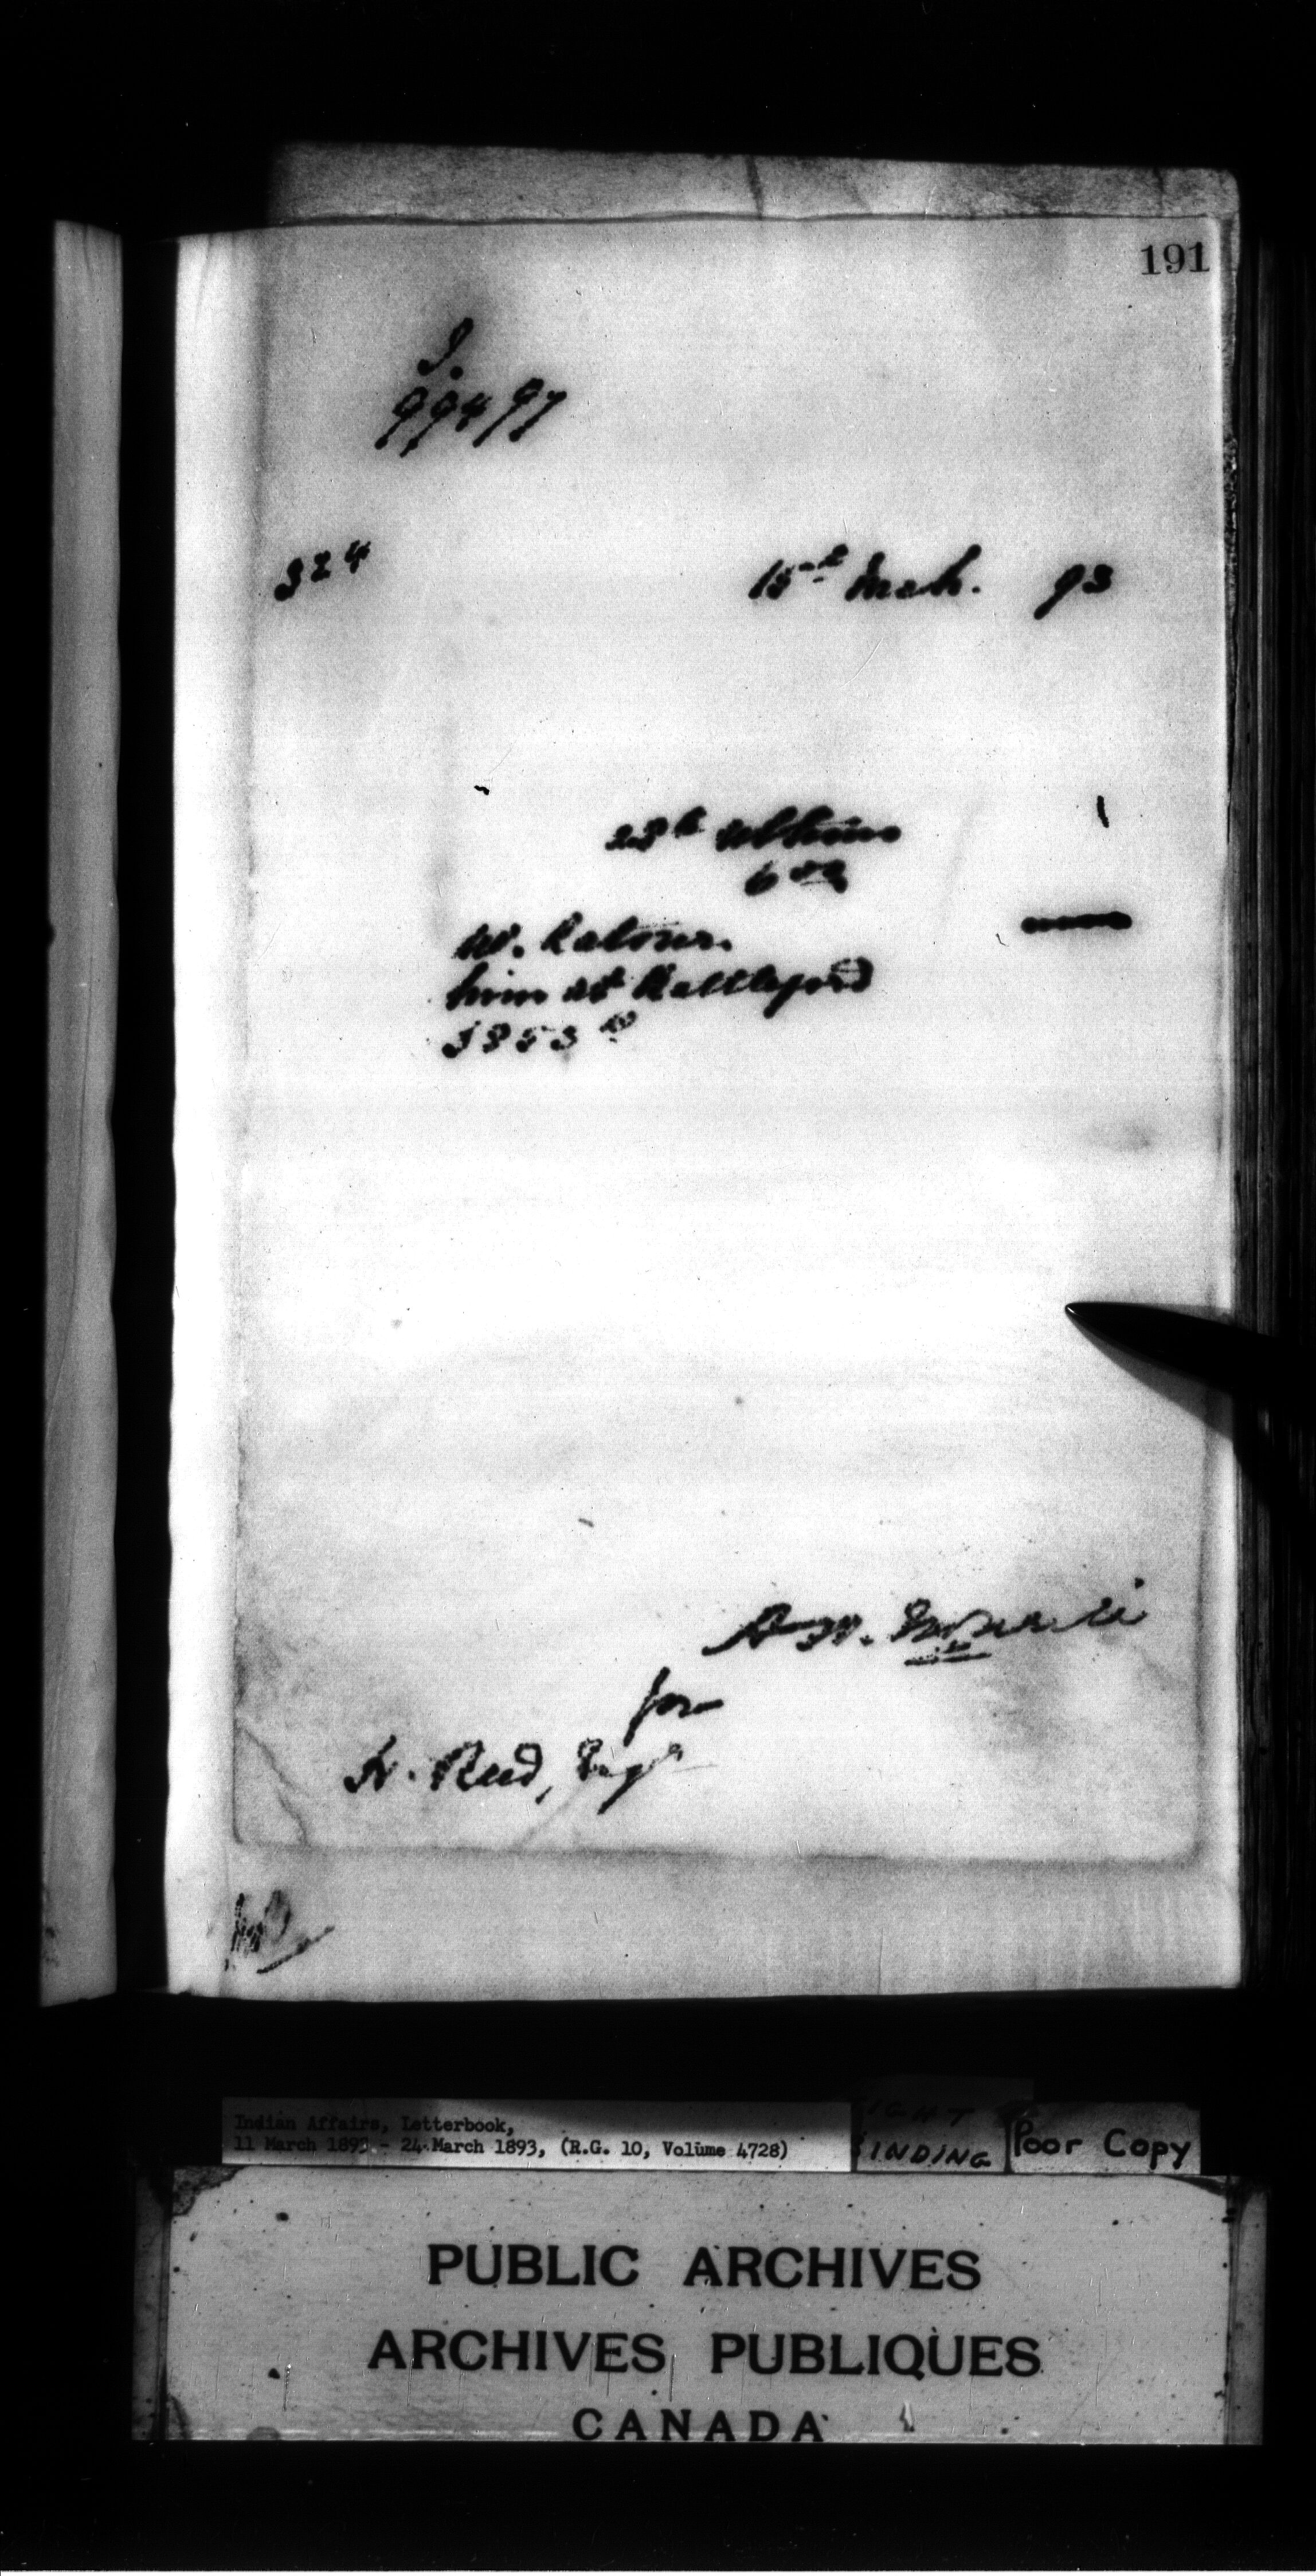 191
I.
99497
324 15th Mch. 93
28th ultimo
6 00
W. Latour.
him at Battleford
3853
for
H. Reed, Esq
Indian Affairs, Letterbook,
11 March 1893 - 24 March 1893, (R.G. 10, Volume 4728)
BINDING
Poor Copy
PUBLIC ARCHIVES
ARCHIVES PUBLIQUES
CANADA